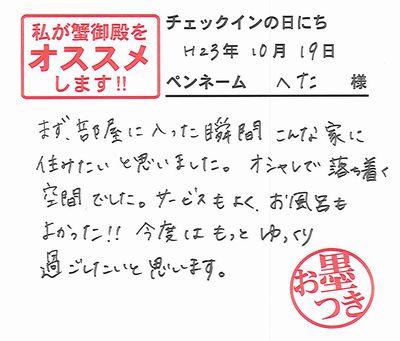 私が蟹御殿を
オススメ
します!!
チェックインの日にち
H23年 10月 19日
ペンネーム へた 様
まず、部屋に入った瞬間 こんな家に
住みたい と思いました。 オシャレで 落ち着く
空間 でした。 サービスもよく、お風呂も
よかった!! 今度は もっと ゆっくり
過ごしたいと思います。
お墨つき